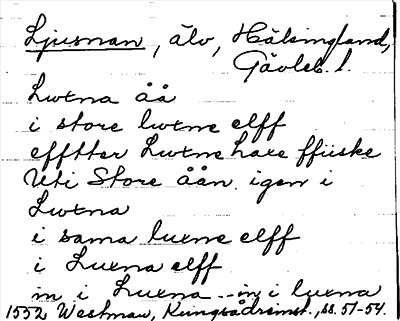 Ljusnan, älv, Hälsingland,
Gävleb. l.
Lwtna åå
i store lwtne elff
efftter Lwtne haxe ffiiske
Uti Store åån. igen i
Lwtna
i sama luxne elff
i Luxna elff
in i Luxna ... in i luxna
1552 Westman, Kungsådreinst., ss. 57-54.